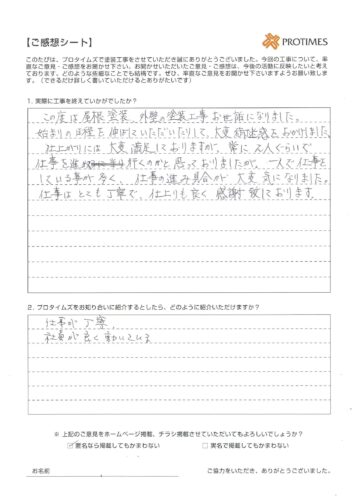 【ご感想シート】
PROTIMES
このたびは、プロタイムズで塗装工事をさせていただき誠にありがとうございました。今回の工事について、率
直なご意見・ご感想をお聞かせ下さい。お聞かせいただいたご意見・ご感想は、今後の活動に反映したいと考え
ております。どのような些細なことでも結構です。ぜひ、率直なご意見をお聞かせ下さいますようお願い致しま
す。(できるだけ詳しく書いていただけるとありがたいです。)
1. 実際に工事を終えていかがでしたか?
この度は屋根塗装、外壁の塗装工事お世話になりました。
始まりの日程を伸ばしていただいたりして、大変御迷惑をおかけしました。
仕上がりには大変満足しておりますが、常に2人ぐらいで
仕事を行くのかと思っておりましたが、一人で仕事を
している事が多く、仕事の進み具合が大変気になりました。
仕事はとても丁寧で、仕上りも良く感謝致しております。
2. プロタイムズをお知り合いに紹介するとしたら、どのように紹介いただけますか?
仕事が丁寧、
社員が良く動いている
※ 上記のご意見をホームページ掲載、チラシ掲載させていただいてもよろしいでしょうか?
☑匿名なら掲載してもかまわない □実名で掲載してもかまわない
お名前
ご協力をいただき、ありがとうございました。